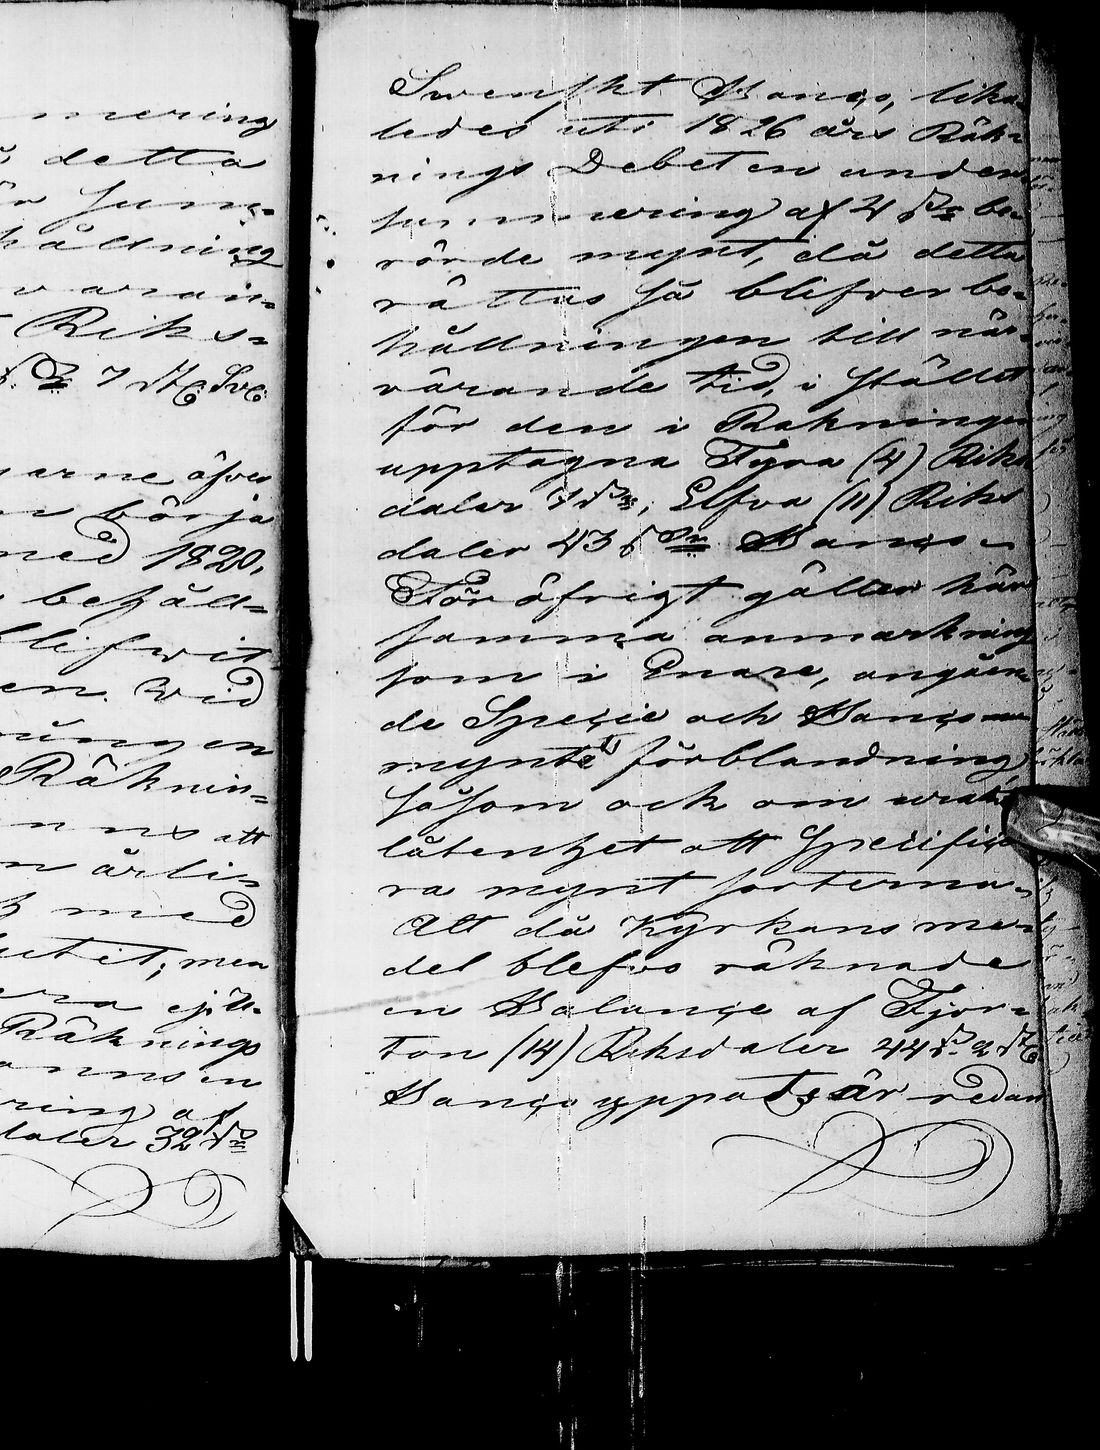 mering
detta
Sum-
hållning
varan-
Riks-
7
arne öfver
börja
med 1820,
behåll-
blifwit
en. Wid
ningen
Räknin-
att
årli-
med
men
Räknings
ring af
daler 32
Swenskt Banço, lika-
ledes uti 1826 års Räk-
nings Debet en under-
summering af 4 be-
rörde mynt, då detta
rättas så blifver be-
hållningen till när-
varande tid, i stället
för den i Rakningen
upptagna Fyra (4) Riks
daler 7 , Elfva (11) Riks
daler 43 Banço.
För öfrigt gäller här
samma anmarkning
som i Enare, angåen-
de Speçie och Banço
mynts förblandning,
såsom ock om urakt-
låtenhet att Speçifiçe-
ra mynt sorterna.
Att då Kyrkans me-
del blefvo räknade
en Balançe af Fjor-
ton (14) Riksdaler 44 2
Banço yppats är redan